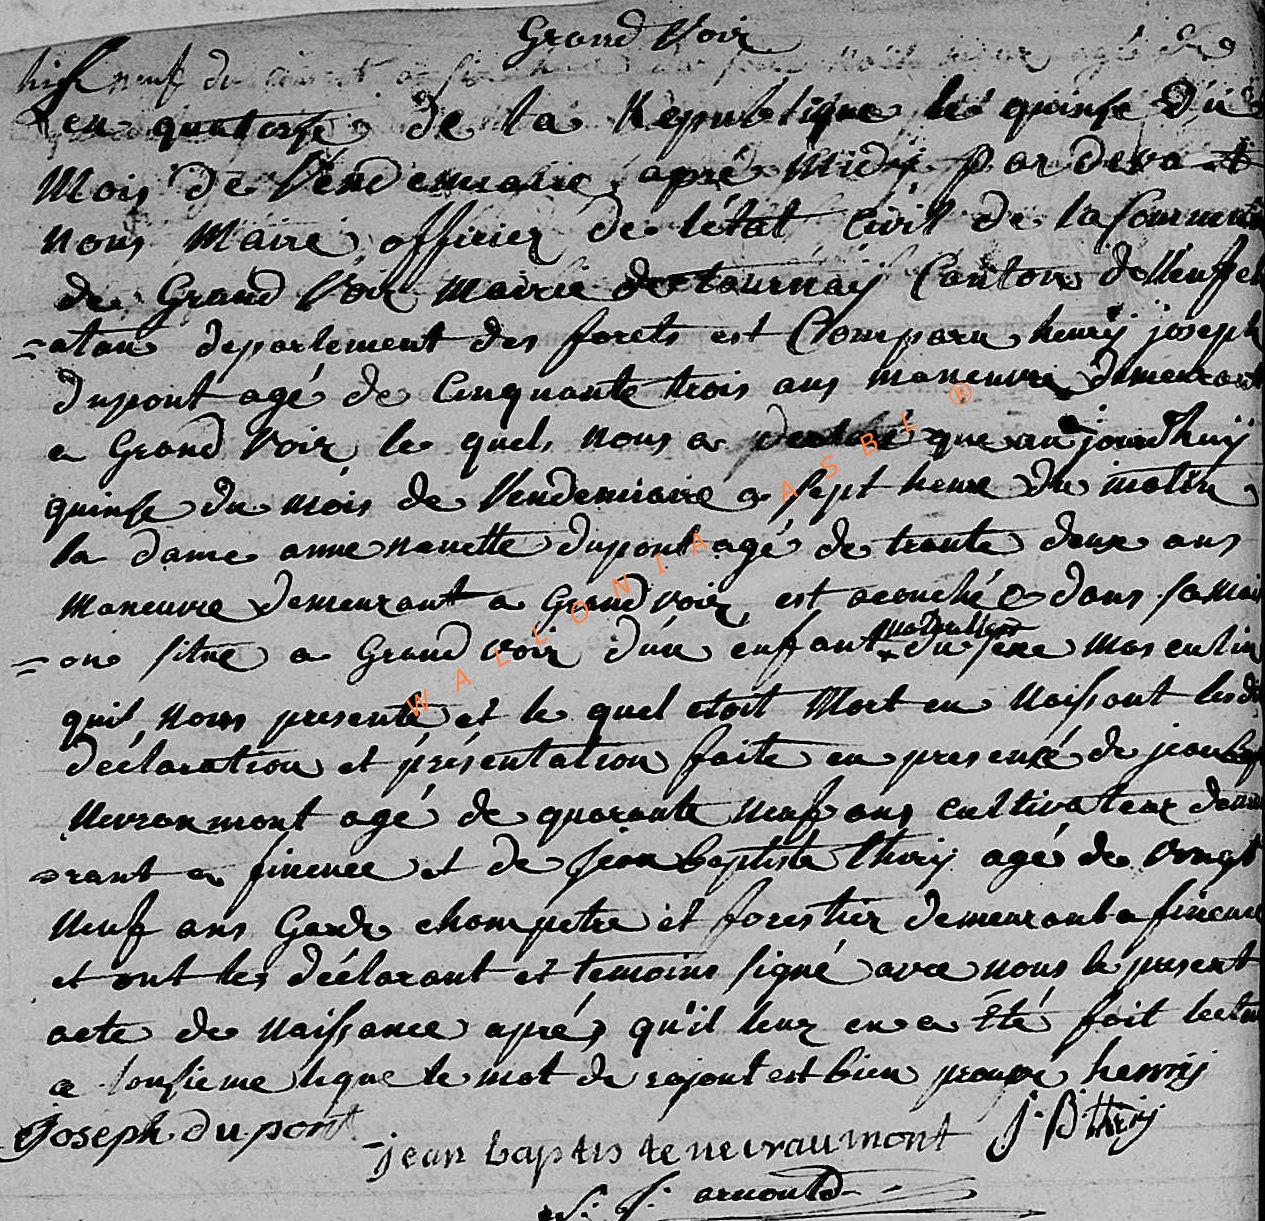 Grand Voir
neuf du
en quatorse de la Republique le quinse du
Mois de Vendemiaire apré midi par devant
nous Maire officier de létat Civil de la Commun
de Grand Voir Mairie de tournaÿ Canton de Neufch
=atau departement des forets est Comparu henrÿ joseph
dupont agé de Cinquante trois ans maneuvre demeurant
a Grand Voir le quel nous a declaré que aujourdhuÿ
quinse du mois de Vendemiaire a sept heure du matin
la dame anne nanette dupont agé de trante deux ans
maneuvre demeurant a Grand voir est acouchée dans sa mais
=on situé a Grand voir d'un enfant naturelle du sexe masculin
quil nous presenté et le quel etoit Mort en naissant lesd
déclaration et présentation faite en presence de jean bap
Nevraumont agé de quarante neuf ans cultivateur demeu
=rant a finence et de jean baptiste thirÿ agé de vingt
neuf ans Garde champetre et forestier demeurant a finence
et ont les déclarant et temoins signé avec nous le present
acte de naissance aprés qu'il leur en a été fait lectu
a lonsieme ligne le mot de rajout est bien henrÿ
Joseph dupont
jean baptiste nevraumont J. B thirÿ
arnould
W A L L O N I A A S B L ®